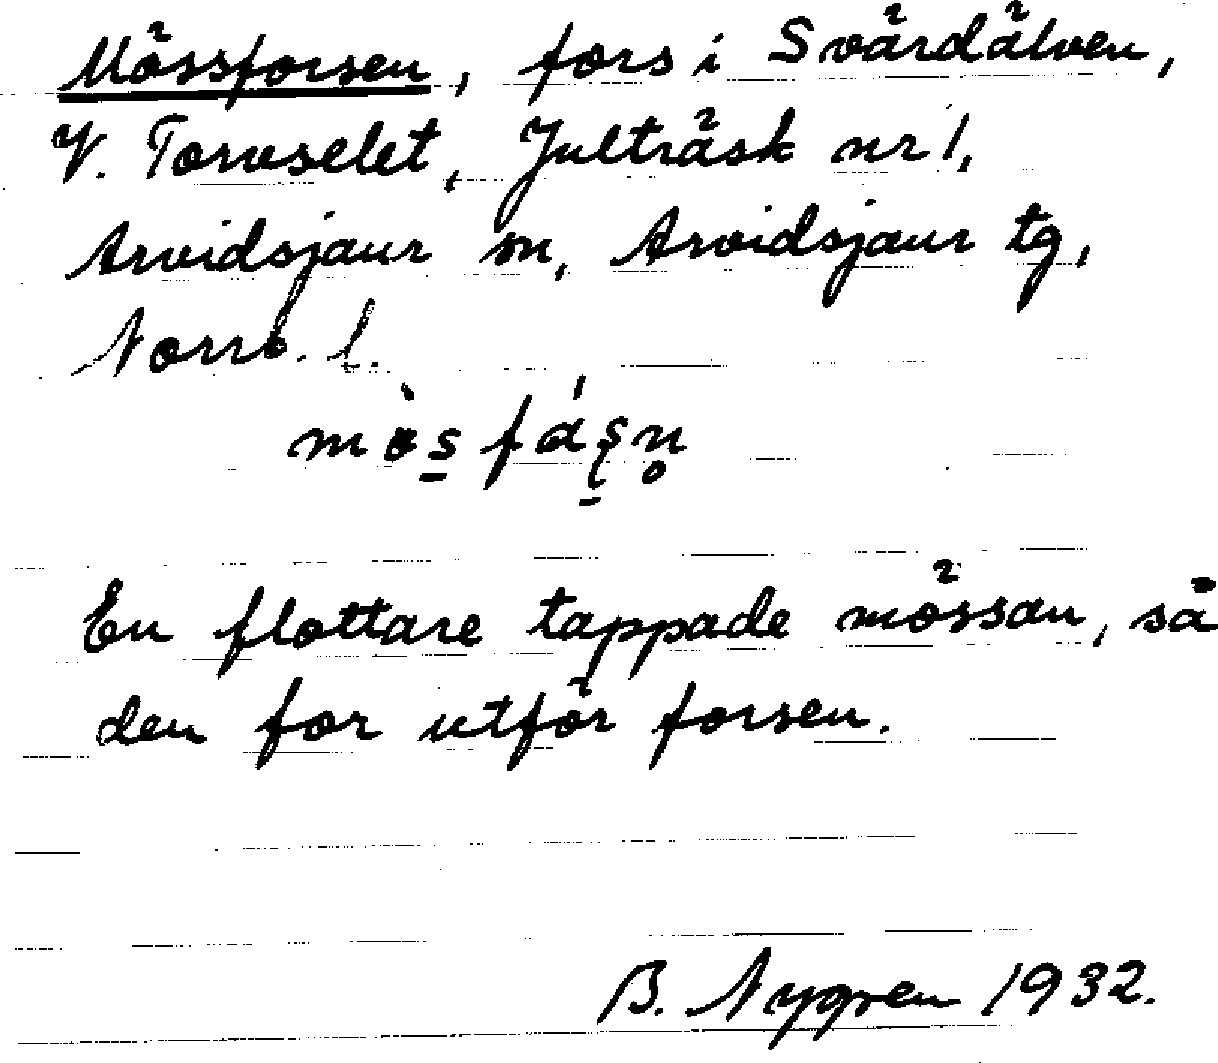 Mössforsen, fors i Svärdälven,
V. Torvselet, Julträsk nr 1,
Arvidsjaur sn, Arvidsjaur tg,
Norrb. l.
En flottare tappade mössan, så
den for utför forsen.
B. Nygren 1932.